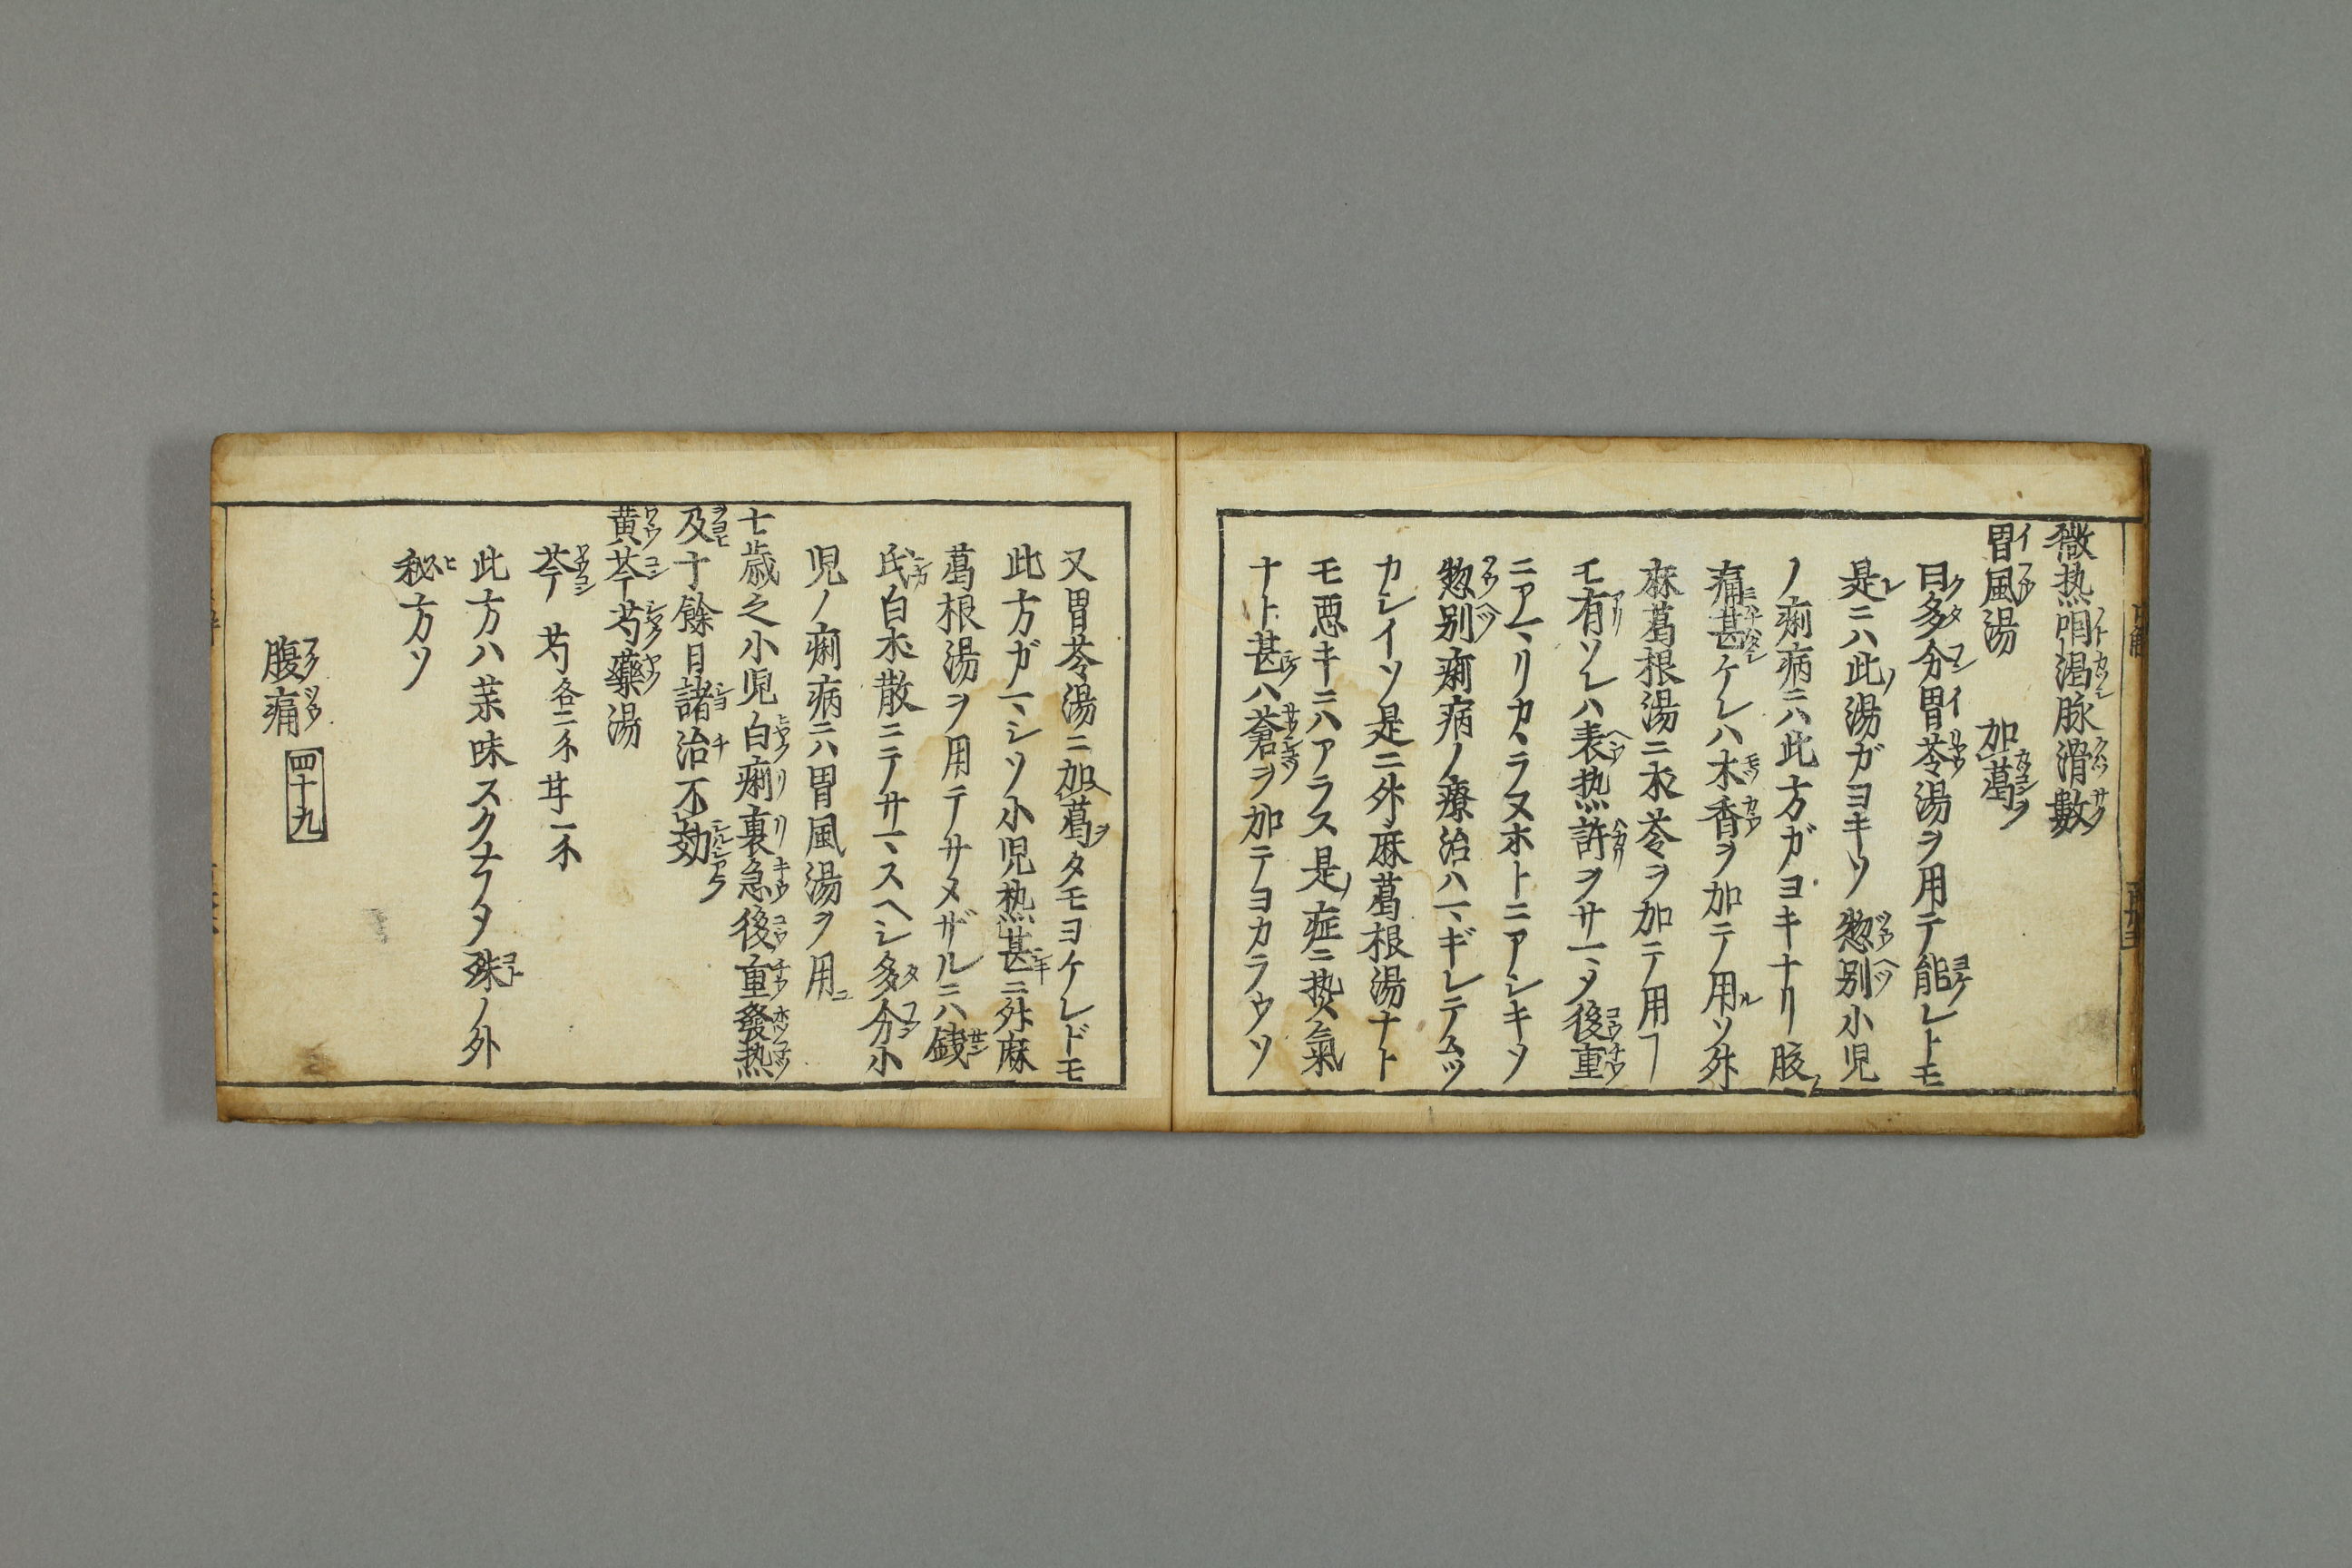 微热咽渇脉滑數
胃風湯　加葛
曰多分胃苓湯ヲ用テ能レトモ
是ニハ此湯ガヨキソ惣別小児
ノ痢病ニハ此方ガヨキナリ腹
痛甚ケレハ木香ヲ加テ用ソ升
麻葛根湯ニ朩苓ヲ加テ用ヿ
モ有ソレハ表热許ヲサマヽタ後重
ニアマリカヽラヌホトニアシキソ
惣别痢病ノ療治ハマギレテムツ
カシイソ是ニ升麻葛根湯ナト
モ悪キニハアラス是症ニ热氣
ナト甚ハ蒼ヲ加テヨカラウソ
又胃苓湯ニ加葛タモヨケレドモ
此方ガマシソ小児热甚ニ升麻
葛根湯ヲ用テサメザルニハ銭
氏白朮散ニテサマスヘシ多分小
児ノ痢病ニハ胃風湯ヲ用
七歳之小児白痢裏急後重發热
及十餘日諸治不効
黄芩芍藥湯
芩　芍各二朩　甘一朩
此方ハ薬味スクナフタ殊ノ外
秘方ソ
腹痛　四十九